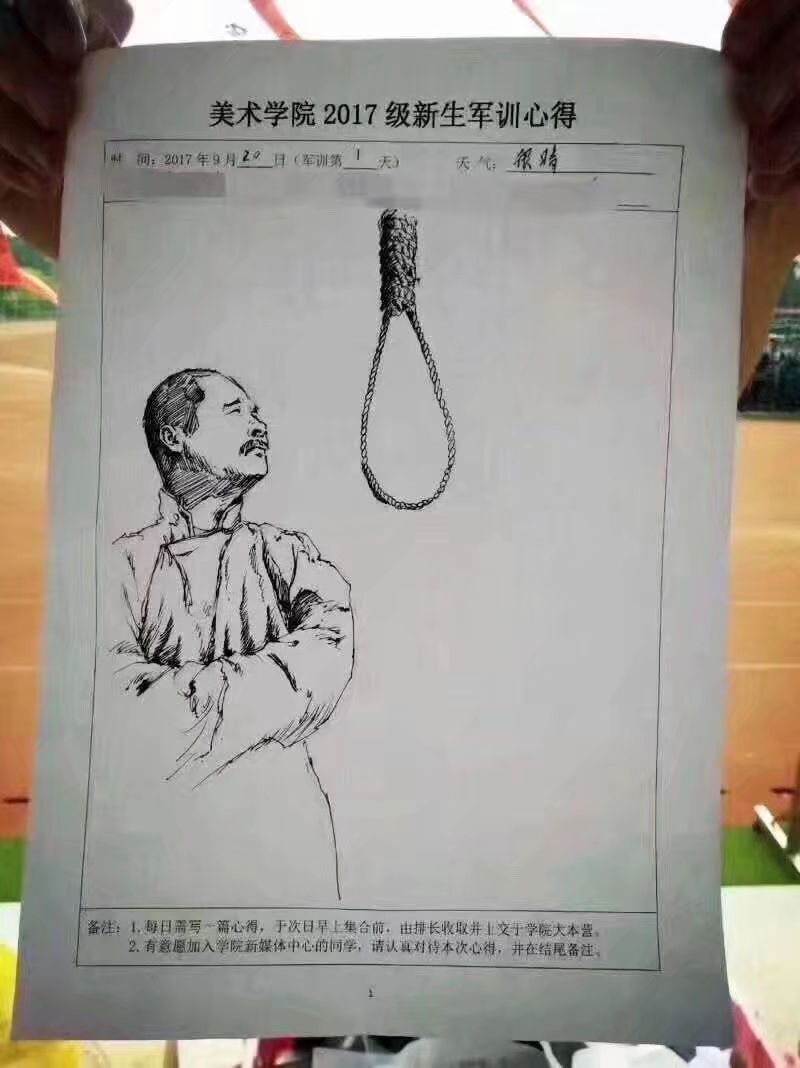 美术学院 2017 级新生军训心得
时 间：2017 年 9 月 20 日（军训第 1 天） 天 气：很晴
备注：1. 每日需写一篇心得，于次日早上集合前，由排长收取并上交于学院大本营。
2. 有意愿加入学院新媒体中心的同学，请认真对待本次心得，并在结尾备注。
1